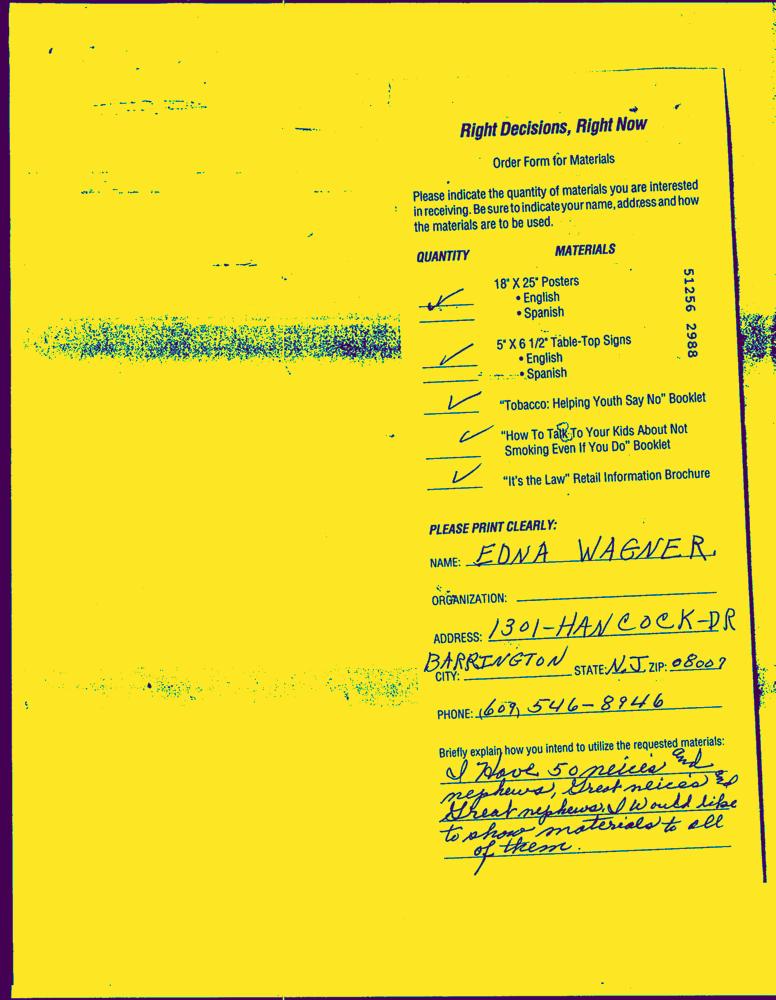 Right Decisions, Right Now
Order Form for Materials
Please indicate the quantity of materials you are interested
in receiving. Be sure to indicate your name, address and how
the materials are to be used.
QUANTITY MATERIALS
✓ 18" X 25" Posters
• English
• Spanish
✓ 5" X 6 1/2" Table-Top Signs
• English
• Spanish
✓ "Tobacco: Helping Youth Say No" Booklet
✓ "How To Talk To Your Kids About Not
Smoking Even If You Do" Booklet
✓ "It's the Law" Retail Information Brochure
51256 2988
PLEASE PRINT CLEARLY:
NAME: EDNA WAGNER
ORGANIZATION:
ADDRESS: 1301-HANCOCK-DR
CITY: BARRINGTON STATE: N.J. ZIP: 08007
PHONE: (609) 546-8946
Briefly explain how you intend to utilize the requested materials:
I Have 50 neices and
nephews, Great neices &
Great nephews. I Would like
to show materials to all
of them.